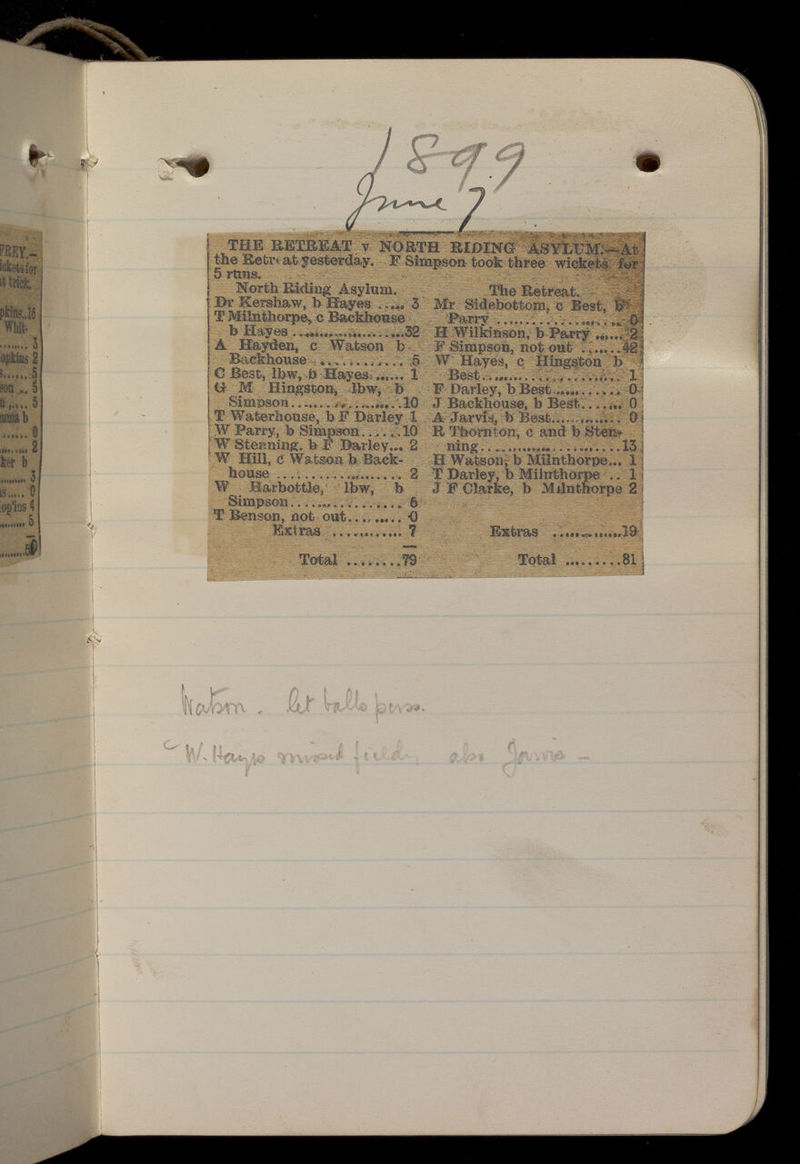 1899
June 7
THE RETREAT v NORTH RIDING ASYLUM.—At
the Retreat yesterday. F Simpson took three wickets for
5 runs.
North Riding Asylum.
Dr Kershaw, b Hayes ..... 3
T Milnthorpe, c Backhouse
b Hayes ..................32
A Hayden, c Watson b
Backhouse ............ 5
C Best, lbw, b Hayes ...... 1
G M Hingston, lbw, b
Simpson..................10
T Waterhouse, b F Darley 1
W Parry, b Simpson......10
W Stenning, b F Darley... 2
W Hill, c Watson b Back-
house .................. 2
W Harbottle, lbw, b
Simpson................ 6
T Benson, not out......... 0
Extras ............ 7
Total ........79
The Retreat.
Mr Sidebottom, c Best, b
Parry .................. 0
H Wilkinson, b Parry ...... 2
F Simpson, not out .......42
W Hayes, c Hingston b
Best..................... 1
F Darley, b Best........... 0
J Backhouse, b Best....... 0
A Jarvis, b Best............ 0
R Thornton, c and b Sten-
ning.....................13
H Watson, b Milnthorpe... 1
T Darley, b Milnthorpe .. 1
J F Clarke, b Milnthorpe 2
Extras ..............19
Total .........81
Watson. let balls pass.
W. Hays missed fieldg also Jarvis —
FREY.—
ickets for
at trick.
pkins..16
Whit-
...... 3
opkins 2
s...... 5
son .. 5
n .... 5
mms b
...... 0
....... 2
ker b
....... 3
s..... 0
opkins 4
....... 5